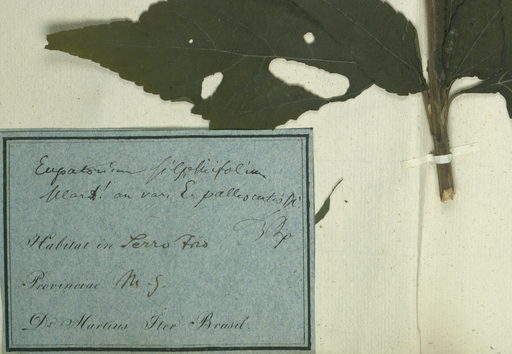 Eupatorium silphiifolium
Mart! an var. E. pallescentis
Habitat in Serro Frio
Provinciae M. G.
Dr. Martius Iter Brasil.